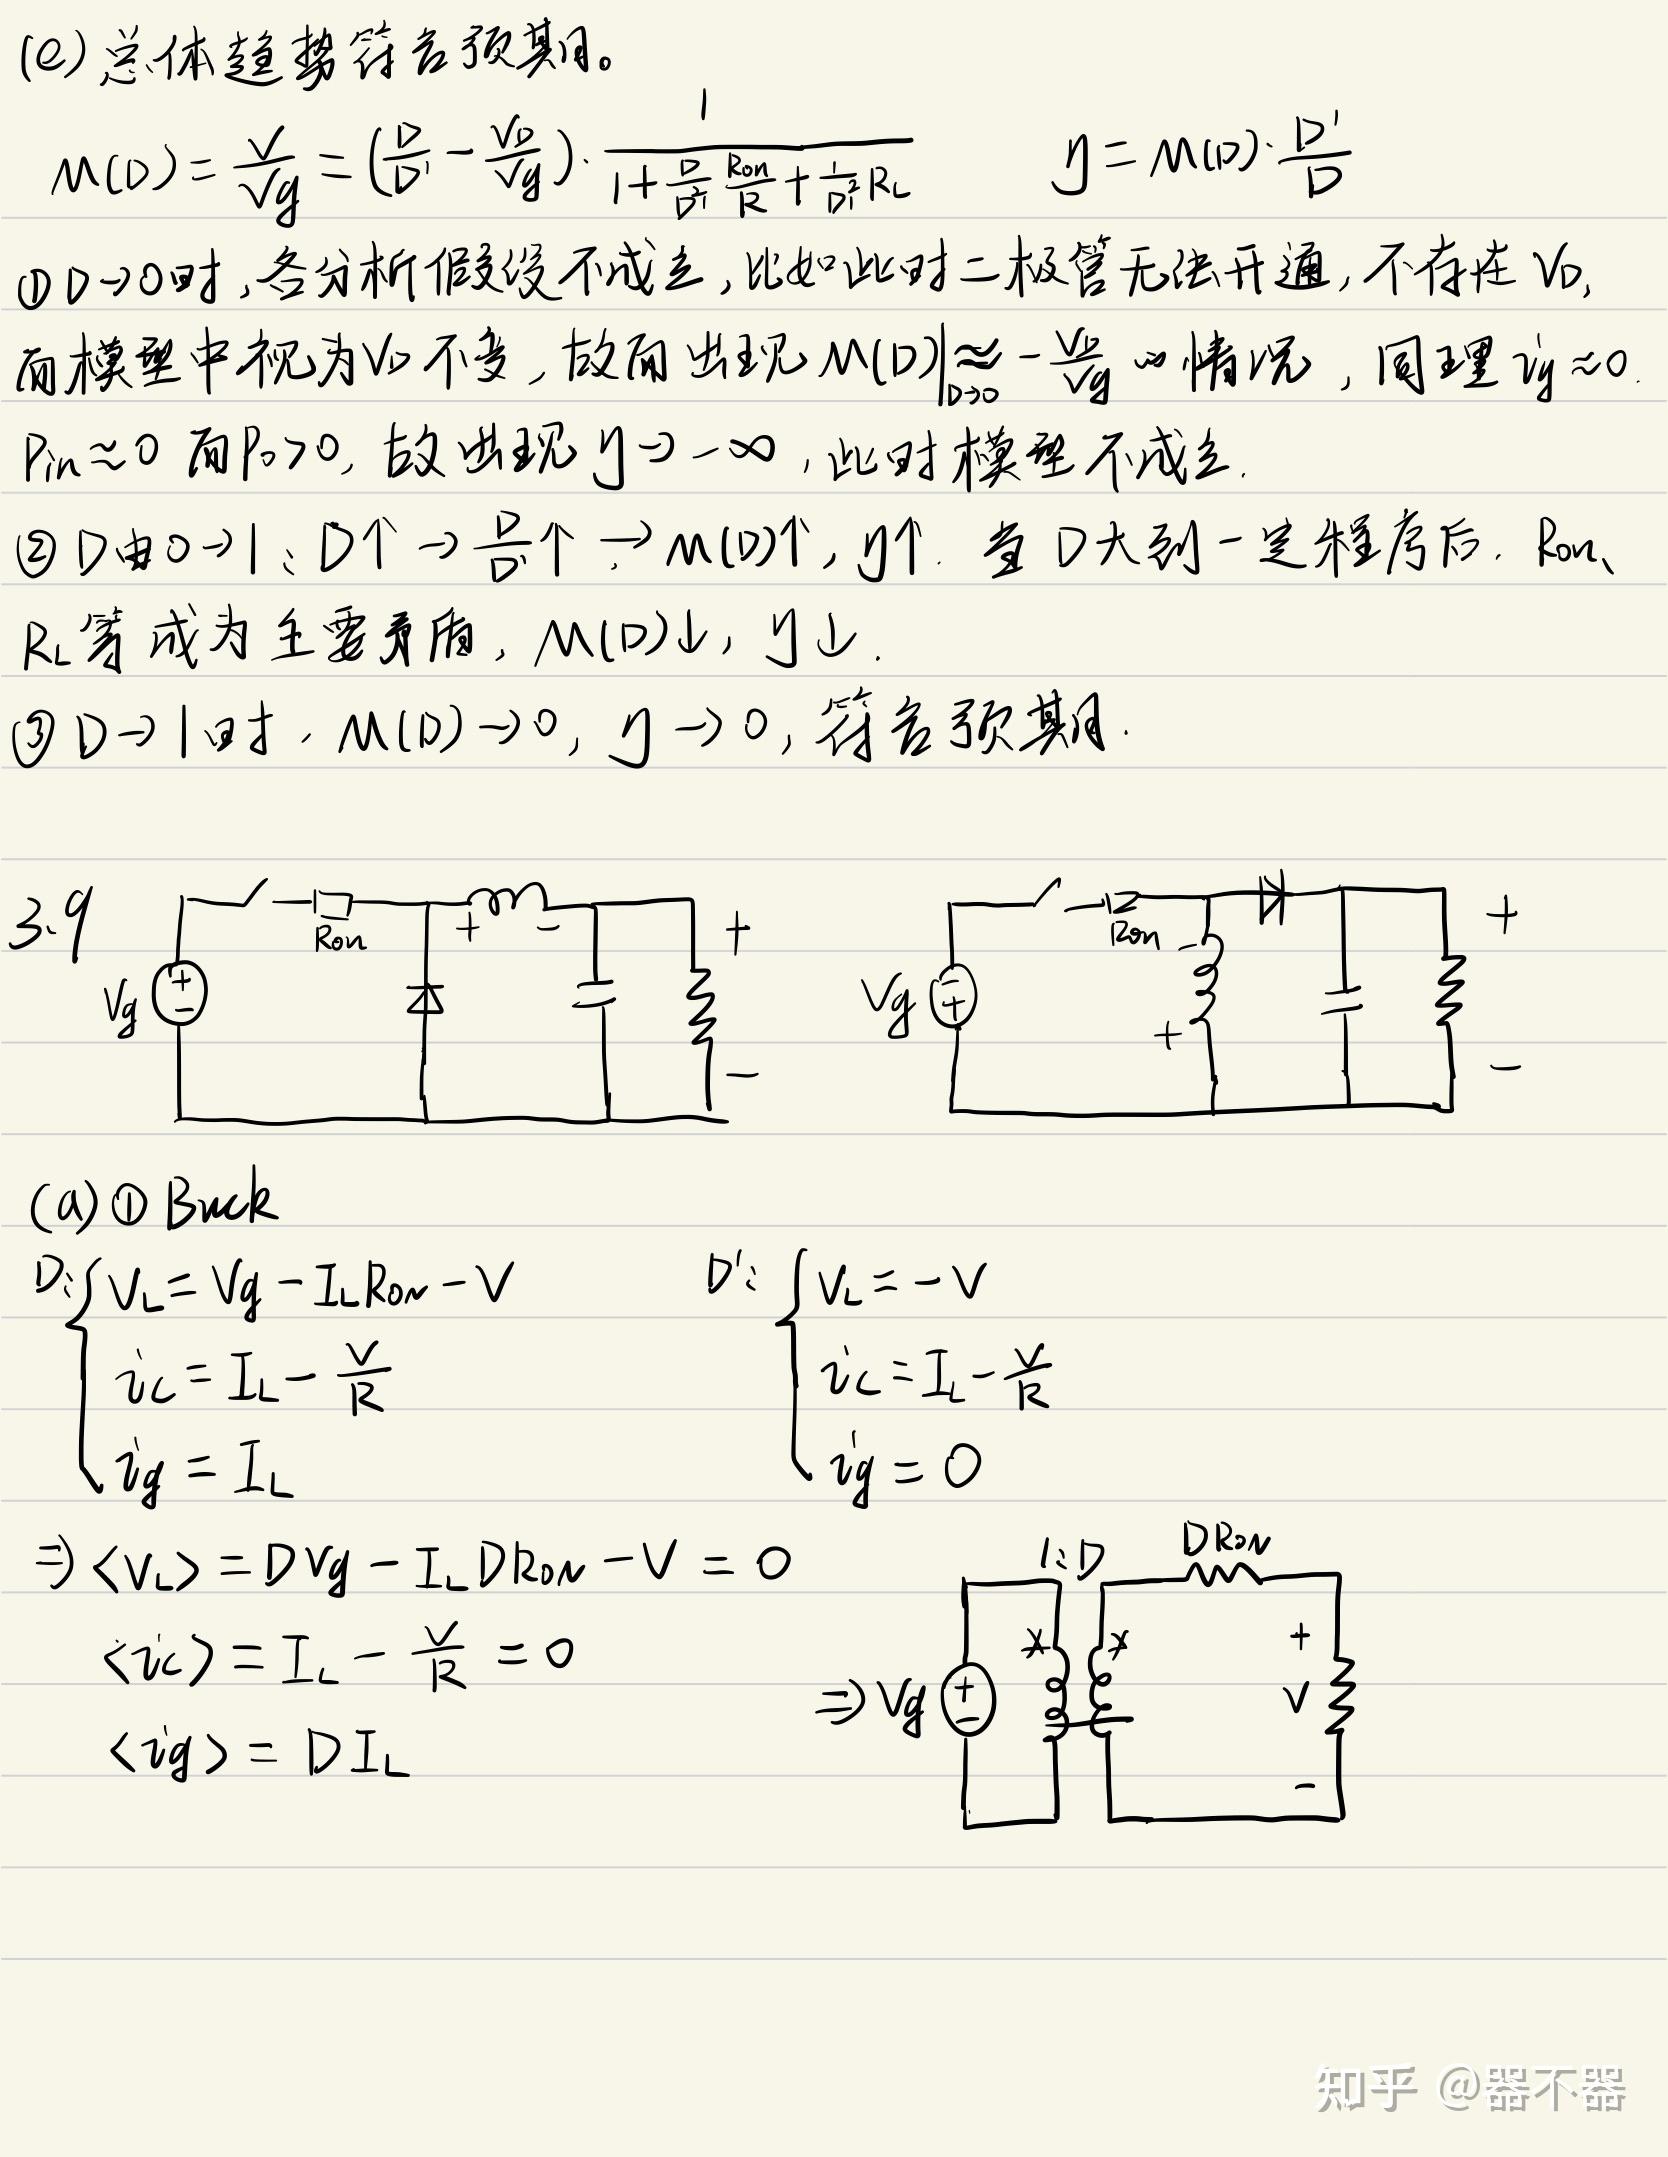 (e) 总体趋势符合预期。
M(D) = V/Vg = (D/D' - VD/Vg) · 1/(1 + D/D'² Ron/R + 1/D'² RL)    η = M(D) · D'/D
① D→0时,各分析假设不成立,比如此时二极管无法开通,不存在 VD,
而模型中视为VD不变,故而出现 M(D)|D→0 ≈ - VD/Vg 的情况,同理 ig≈0.
Pin≈0 而Po>0, 故出现 η→-∞,此时模型不成立.
② D由0→1: D↑ → D/D'↑ → M(D)↑, η↑. 当 D大到一定程度后. Ron、
RL等成为主要矛盾, M(D)↓, η↓.
③ D→1时, M(D)→0, η→0, 符合预期.
3.9
Ron
Vg
+ -
+
-
Ron
Vg
-
+
+
-
(a) ① Buck
D: { VL = Vg - ILRON - V
ic = IL - V/R
ig = IL
D': { VL = -V
ic = IL - V/R
ig = 0
⇒ <VL> = DVg - ILDRON - V = 0
<ic> = IL - V/R = 0
<ig> = DIL
⇒ Vg
1:D
DRON
+
V
-
知乎 @器不器